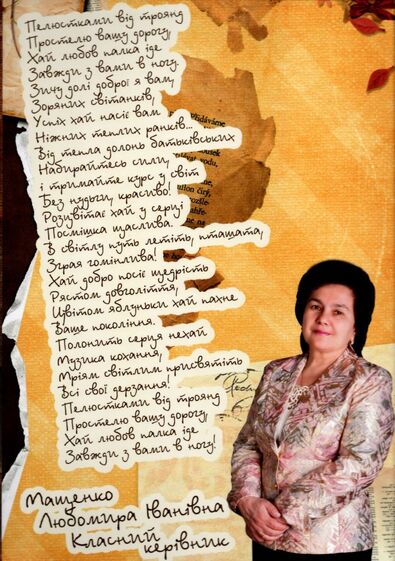 Пелюстками від троянд
Простелю вашу дорогу,
Хай любов палка іде
Завжди з вами в ногу.
Зичу долі доброї я вам,
Зоряних світанків,
Успіх хай насіє вам
Ніжних теплих ранків...
Від тепла долонь батьківських
Набирайтесь сили,
і тримайте курс у світ
Без нудьги, красиво!
Розцвітає хай у серці
Посмішка щаслива.
В світлу путь летіть, пташата,
Зграя гомінлива!
Хай добро посіє щедрість
Рястом довголіття,
Цвітом яблуньки хай пахне
Ваше покоління.
Полонить серця нехай
Музика кохання,
Мріям світлим присвятіть
Всі свої дерзання!
Пелюстками від троянд
Простелю вашу дорогу,
Хай любов палка іде
Завжди з вами в ногу!
Мащенко
Любомира Іванівна
Класний
керівник